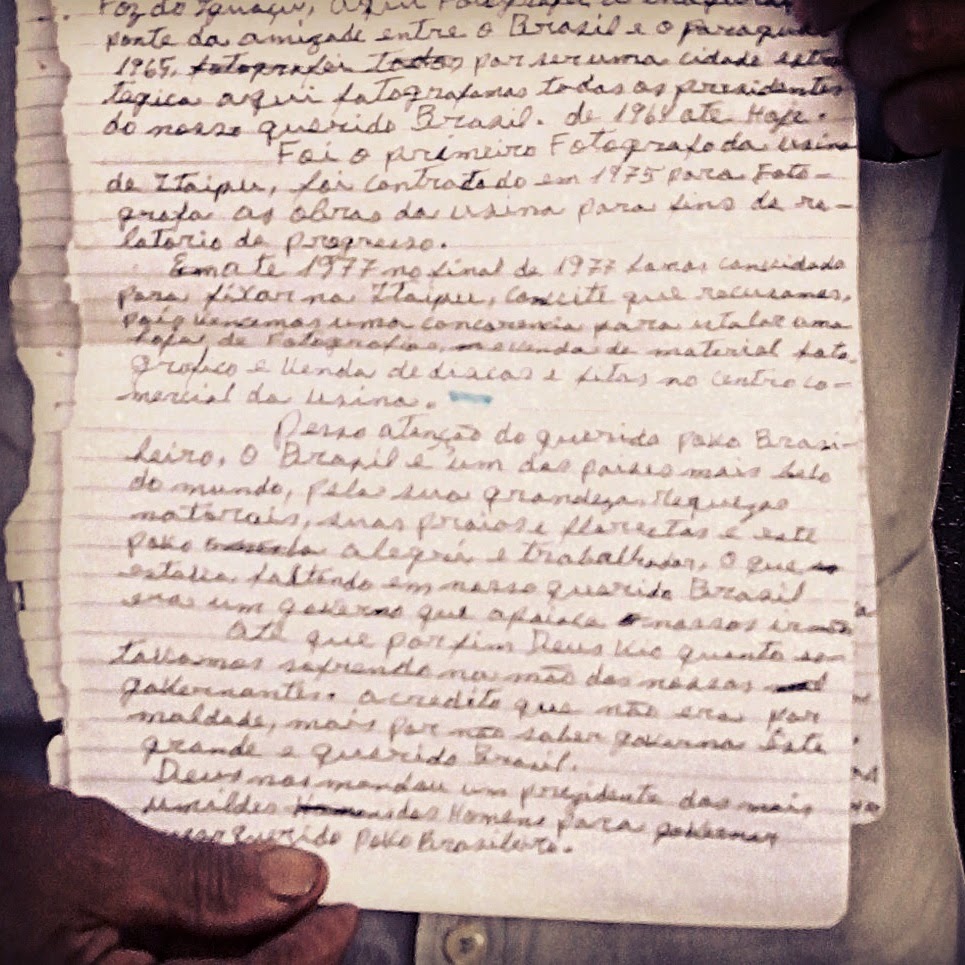 Foz do Iguaçu, aqui Fotografei a
ponte da amizade entre o Brasil e o Paraguai
1965, fotografei todos por ser uma cidade estra
tegica aqui fotografamos todos os presidentes
do nosso querido Brasil. de 1964 ate Hoje.
Foi o primeiro Fotografo da usina
de Itaipu, foi contratado em 1975 para Foto-
grafa as obras da usina para fins de re-
latorio de progresso.
ate 1977 no final de 1977 convidado
para fixar na Itaipu, convite que recusamos,
pois vencemos uma concorencia para istalar uma
loja de Fotografias, revenda de material foto-
grafico e Venda de discos e fitas no centro co-
mercial da usina.
Pesso atenção do querido povo Brasi-
leiro, O Brasil e um dos paises mais belo
do mundo, pela sua grandeza, Requezas
natorais, suas praias e florestas e este
povo alegri e trabalhador, O que
estava faltando em nosso querido Brasil
era um governo que apoiaca nossos irmão
Até que por fim Deus Vio quanto es-
tavamos sofrendo na mão dos nossos
governantes. acredito que não era por
maldade, mais por não saber governa Este
grande e querido Brasil.
Deus nos mandou um prezidente dos mais
umildes dos Homens para governar
querido povo Brasileiro.